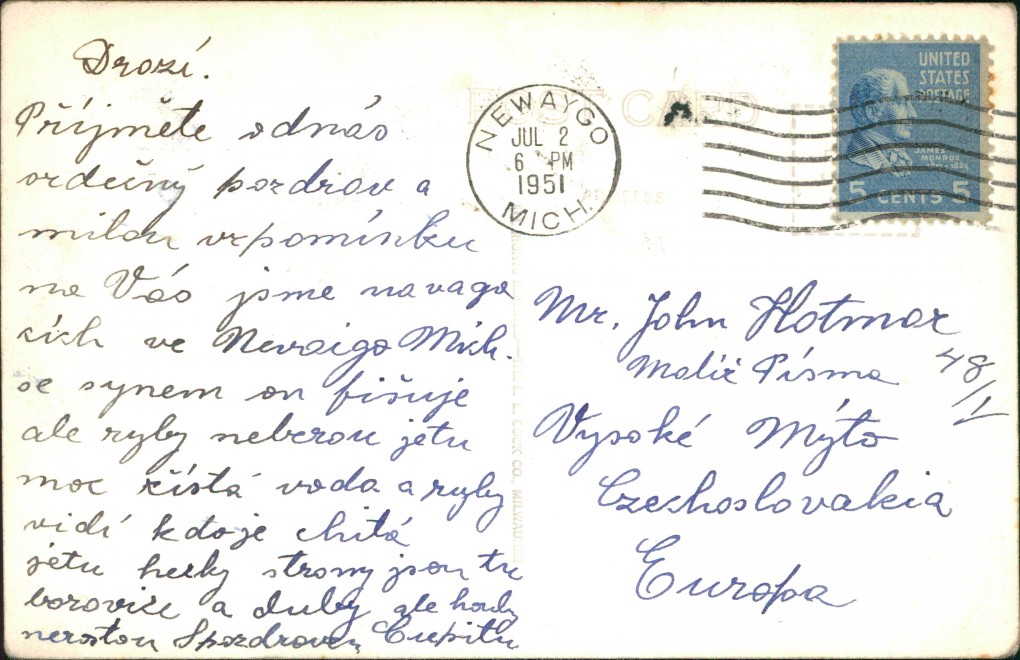 Drozí.
Příjměte odnás
srdečný pozdrav a
milou vzpomínku
na Vás jsme na vaga
cích ve Nevaigo Mich.
se synem on fišuje
ale ryby neberou jetu
moc čistá voda a ryby
vidí kdoje chitá
jetu hezky stromy jsou tu
borovice a duby ale houby
nerostou S pozdravem
POST CARD
ADDRESS
NEWAYGO
JUL 2
6 PM
1951
MICH.
UNITED
STATES
POSTAGE
JAMES
MONROE
5 CENTS 5
L. L. COOK CO., MILWAUKEE
Mr. John Hotmar
Malíř Písma
48/I
Vysoké Mýto
Czechoslovakia
Europa